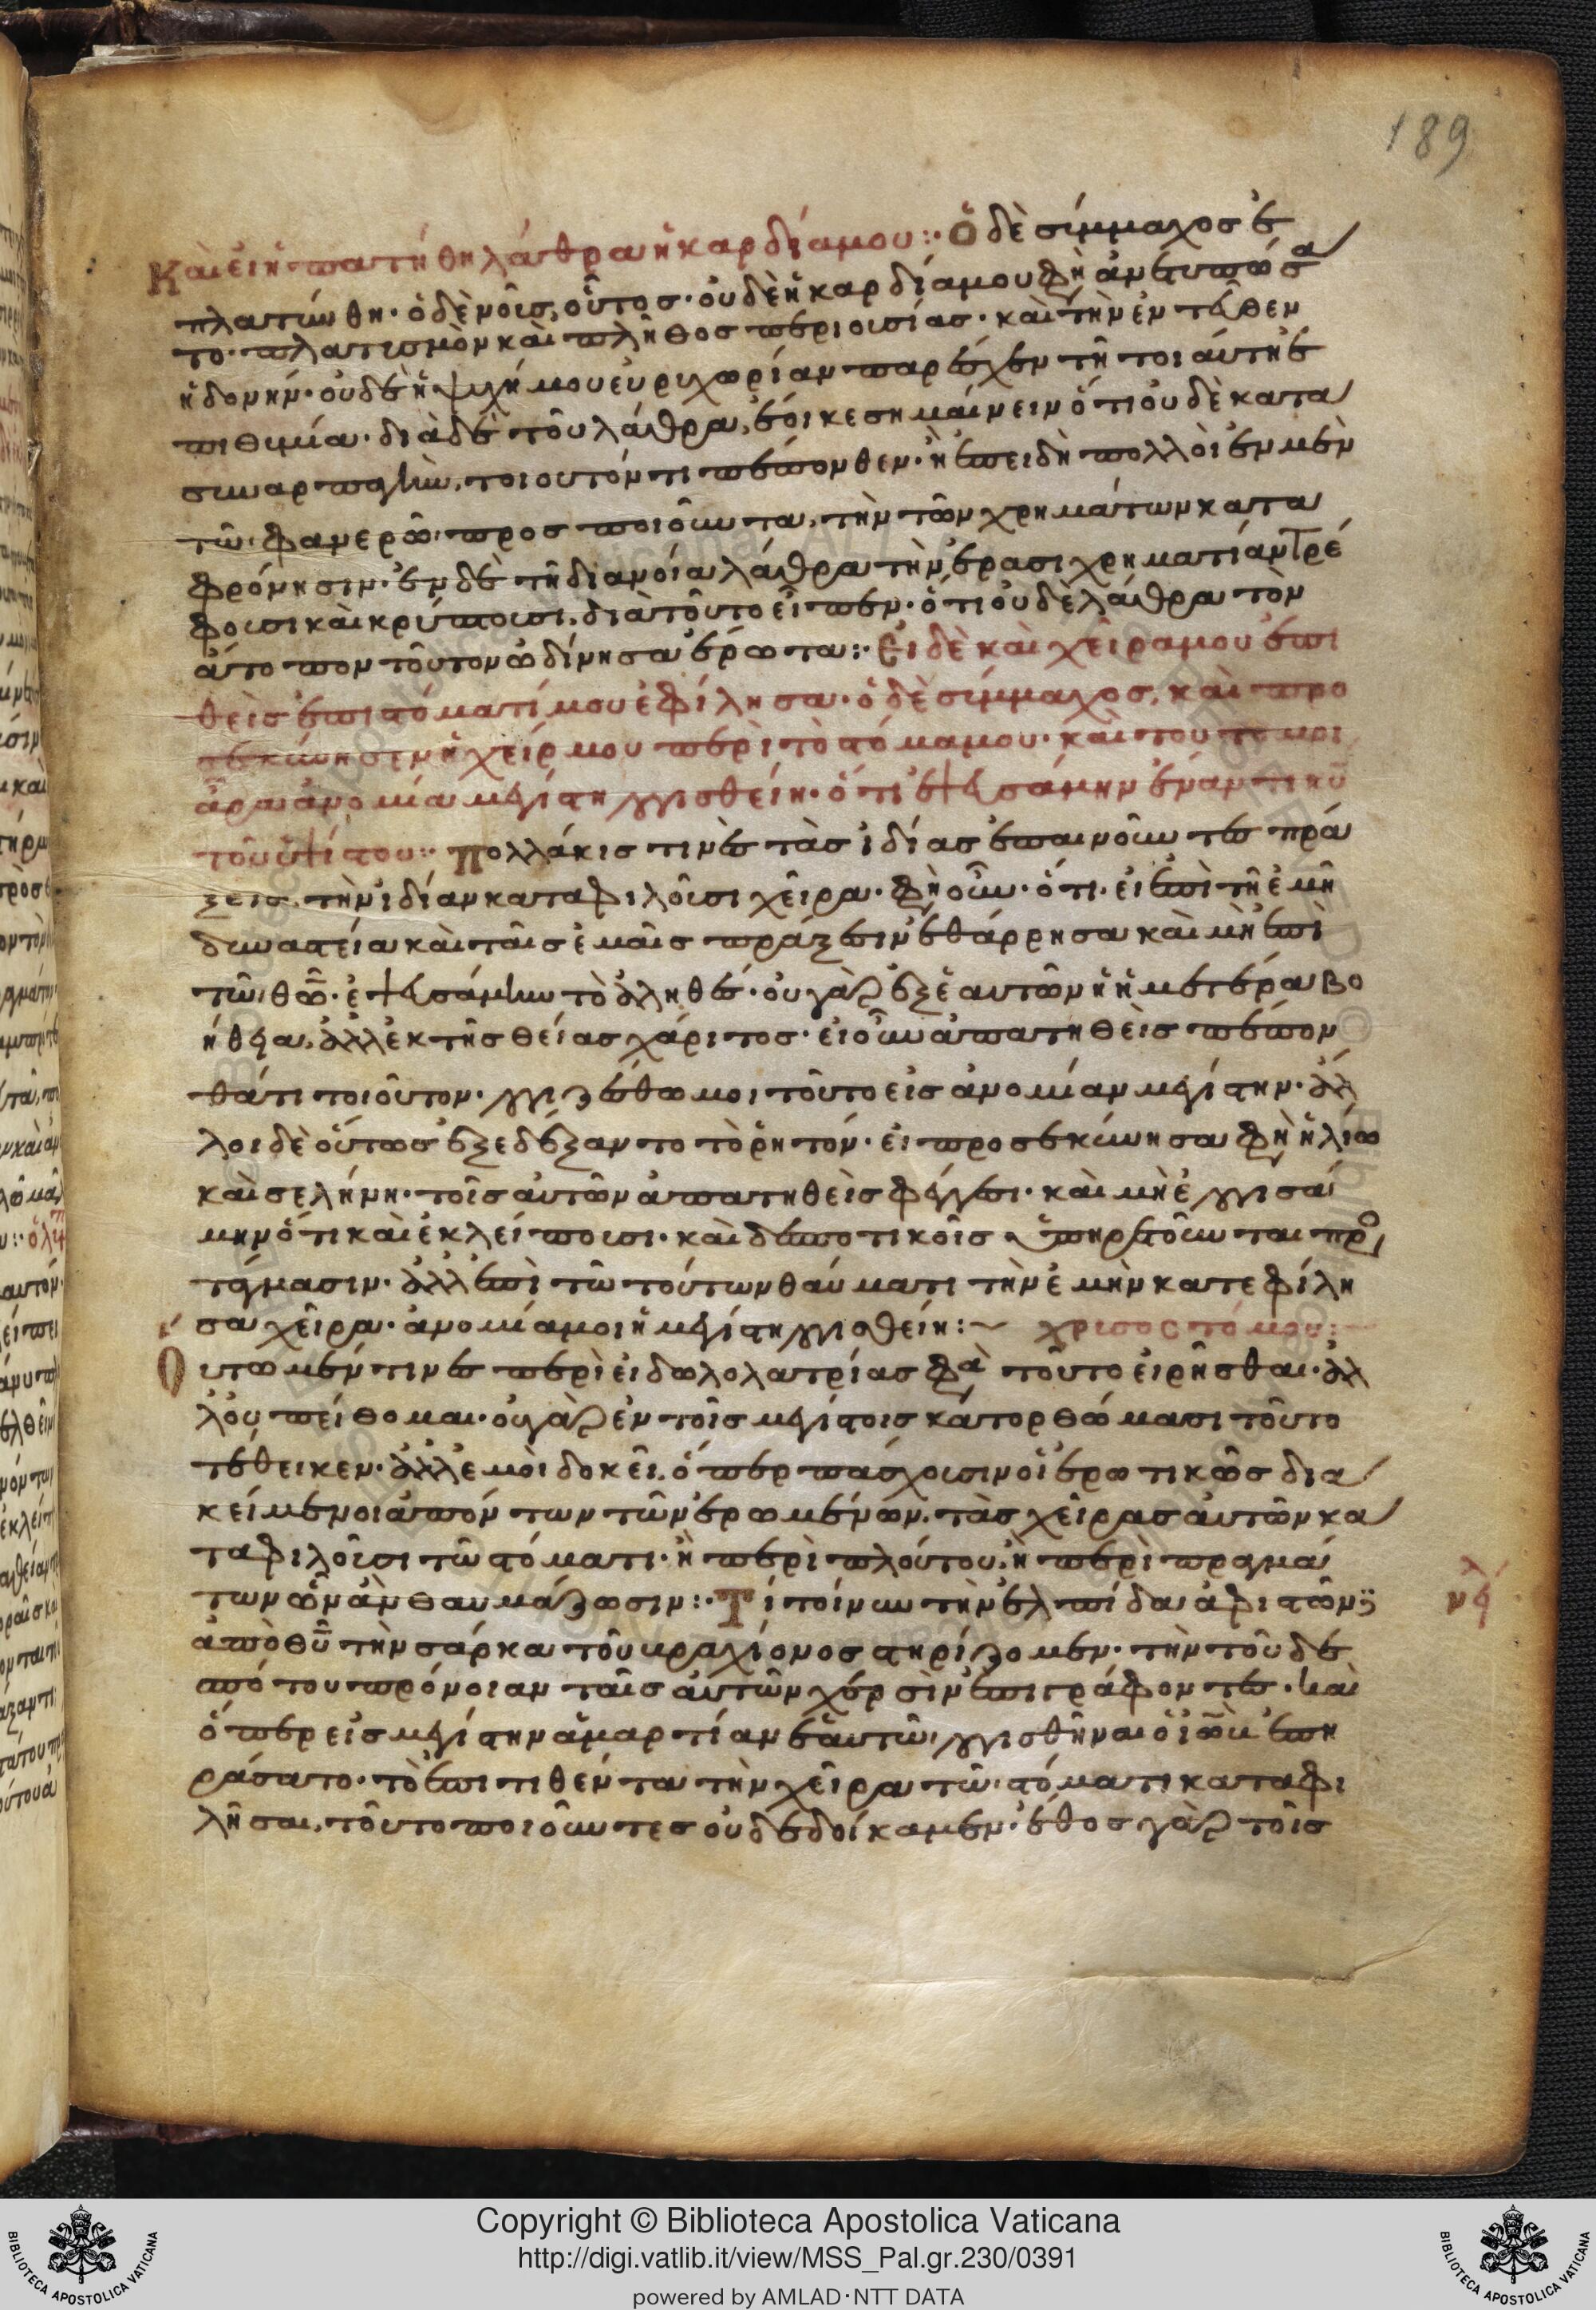 189
Καὶ εἰ ἠπατήθη λάθρα ἡ καρδία μου :· ὁ δὲ σύμμαχος ἐ
πλατύνθη · ὁ δὲ νοῦς, οὗτος · οὐδὲ ἡ καρδία μου φὴ ἀνεπαύσα
το · πλατυσμὸν καὶ πλῆθος περιουσίας · καὶ τὴν ἐντεῦθεν
ἡδονήν · οὐδὲ ἡ ψυχή μου εὐρυχωρίαν παρέσχεν τῇ τοιαύτῃ ἐ
πιθυμία · διὰ δὲ τοῦ λάθρα, ἔοικε σημαίνειν ὅτι οὐδὲ κατα
συναρπαγὴν, τοιοῦτόν τι πέπονθεν · ἢ ἐπειδὴ πολλοὶ ἐν μὲν
τῶ φανερῶ προσποιοῦνται, τὴν τῶν χρημάτων κατα
φρόνησιν · ἐν δὲ τῇ διανοία λάθρα τὴν ἐρασιχρηματίαν τρέ
φουσι καὶ κρύπτουσι, διὰ τοῦτο εἶπεν · ὅτι οὐδὲ λάθρα τὸν
ἄτοπον τοῦτον ὠδίνησα ἔρωτα :· Εἰ δὲ καὶ χεῖρα μου ἐπι
θεὶς ἐπι στόματί μου ἐφίλησα · ὁ δὲ σύμμαχος, καὶ προ
σεκύνησεν ἡ χείρ μου περὶ τὸ στόμα μου · καὶ τοῦτο μοι
ἄρα ἀνομία μεγίστη λογισθείη · ὅτι ἐψευσάμην ἐναντι κυ
τοῦ ὑψίστου :· Πολλάκις τινὲς τὰς ἰδίας ἐπαινοῦντες πρά
ξεις, τὴν ἰδίαν καταφιλοῦσι χεῖρα · φὴ οὖν · ὅτι · εἰ ἐπὶ τῇ ἐμῇ
δυναστεία καὶ ταῖς ἐμαῖς πράξεσιν ἐθάρρησα καὶ μὴ ἐπὶ
τῶ θῶ · ἐψευσάμην τὸ ἀληθές · οὐ γὰρ ἐξ ἑαυτῶν ἡ ἡμετέρα βο
ήθεια, ἀλλ' ἐκ τῆς θείας χάριτος · εἰ οὖν ἀπατηθεὶς πέπον
θά τι τοιοῦτον · λογιζέσθω μοι τοῦτο εἰς ἀνομίαν μεγίστην · ἄλ
λοι δὲ οὕτως ἐξεδέξαντο τὸ ῥητόν · εἰ προσεκύνησα φὴ ἡλίω
καὶ σελήνη · τοῖς αὐτῶν ἀπατηθεὶς φέγγεσι · καὶ μὴ ἐλογισά
μην ὅτι καὶ ἐκλείπουσι · καὶ δεσποτικοῖς ὑπηρετοῦνται προσ
τάγμασιν · ἀλλ' ἐπὶ τῶ τούτων θαύματι τὴν ἐμὴν κατεφίλη
σα χεῖρα · ἀνομία μοι ἡ μεγίστη λογισθείη :~ χρυσοστόμου :~
Οὕτω μέν τινες περὶ εἰδωλολατρίας φα τοῦτο εἰρῆσθαι · ἀλ
λ' οὐ πείθομαι · οὐ γὰρ ἐν τοῖς μεγίστοις κατορθώμασι τοῦτο
τέθεικεν · ἀλλ' ἐμοὶ δοκεῖ, ὅπερ πάσχουσιν οἱ ἐρωτικῶς δια
κείμενοι ἀπόντων τῶν ἐρωμένων, τὰς χεῖρας αὐτῶν κα
ταφιλοῦσι τῶ στόματι · ἢ περὶ πλούτου, ἢ περὶ πραγμά
των ὧν ἂν θαυμάζωσιν :· Τί τοίνυν τὴν ἐλπίδα ἀφιστῶντες
ἀπὸ θῦ τὴν σάρκα τοῦ βραχίονος στηρίζομεν · τὴν τοῦ δε
σπότου πρόνοιαν ταῖς αὐτῶν χερσὶν ἐπιγράφοντες · καὶ
ὅπερ εἰς μεγίστην ἁμαρτίαν ἑαυτῶ λογισθῆναι ὁ ἰὼβ ἐπη
ράσατο · τὸ ἐπιτιθέντα τὴν χεῖρα τῶ στόματι καταφι
λῆσαι, τοῦτο ποιοῦντες οὐ δεδοίκαμεν · ἔθος γὰρ τοῖς
Copyright © Biblioteca Apostolica Vaticana
http://digi.vatlib.it/view/MSS_Pal.gr.230/0391
powered by AMLAD·NTT DATA
BIBLIOTECA APOSTOLICA VATICANA
BIBLIOTECA APOSTOLICA VATICANA